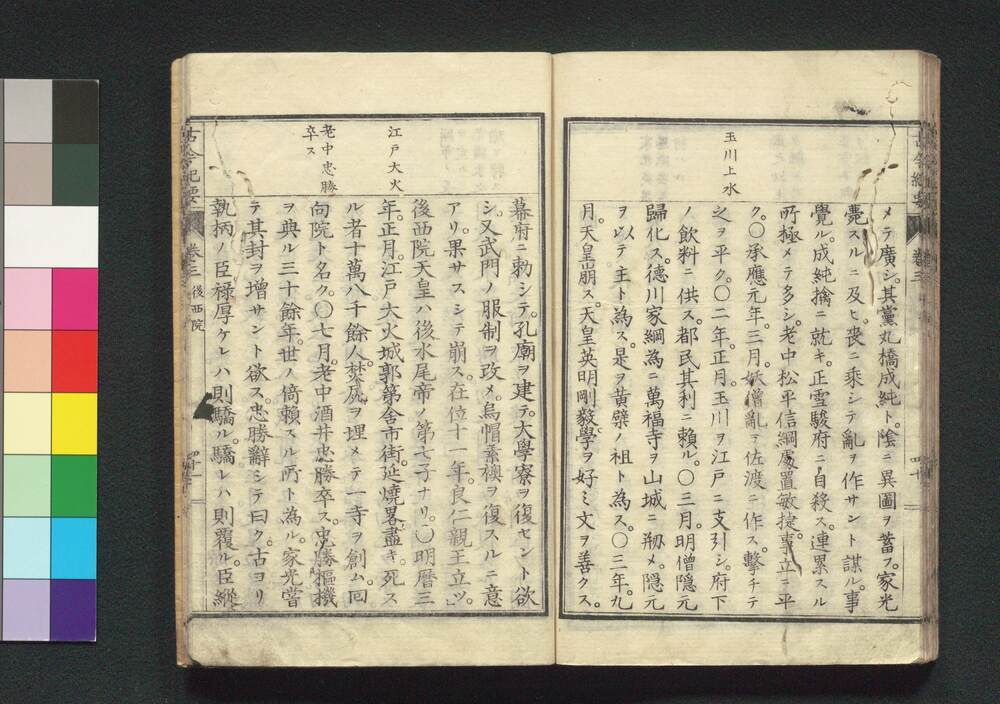 玉川上水
メテ廣シ。其黨丸橋成純ト。陰ニ異圖ヲ蓄フ。家光
薨スルニ及ヒ。喪ニ乘シテ亂ヲ作サント謀ル。事
覺ル。成純擒ニ就キ。正雪駿府ニ自殺ス。連累スル
所極メテ多シ。老中松平信綱處置敏捷。事立ニ平
ク。〇承應元年。三月。妖僧亂ヲ佐渡ニ作ス。擊チテ
之ヲ平ク。〇二年。正月。玉川ヲ江戸ニ支引シ。府下
ノ飲料ニ供ス。都民其利ニ賴ル。〇三月。明僧隱元
歸化ス。德川家綱為ニ萬福寺ヲ山城ニ剏メ。隱元
ヲ以テ主ト為ス。是ヲ黄檗ノ祖ト為ス。〇三年。九
月。天皇崩ス。天皇英明剛毅學ヲ好ミ文ヲ善クス。
古今紀要
卷三
四十
江戸大火
老中忠勝
卒ス
幕府ニ勅シテ。孔廟ヲ建テ。大學寮ヲ復セント欲
シ。又武門ノ服制ヲ改メ。烏帽素襖ヲ復スルニ意
アリ。果サスシテ崩ス。在位十一年。良仁親王立ツ。」
後西院天皇ハ後水尾帝ノ第七子ナリ。〇明曆三
年。正月。江戸大火城郭第舍市街。延燒畧盡キ。死ス
ル者十萬八千餘人。焚屍ヲ埋メテ一寺ヲ創ム。回
向院ト名ク。〇七月。老中酒井忠勝卒ス。忠勝樞機
ヲ典ル三十餘年。世ノ倚賴スル所ト為ル。家光嘗
テ其封ヲ增サント欲ス。忠勝辭シテ曰ク。古ヨリ
執柄ノ臣祿厚ケレハ則驕ル。驕レハ則覆ル。臣縱
古今紀要
卷三
後西院
四十一